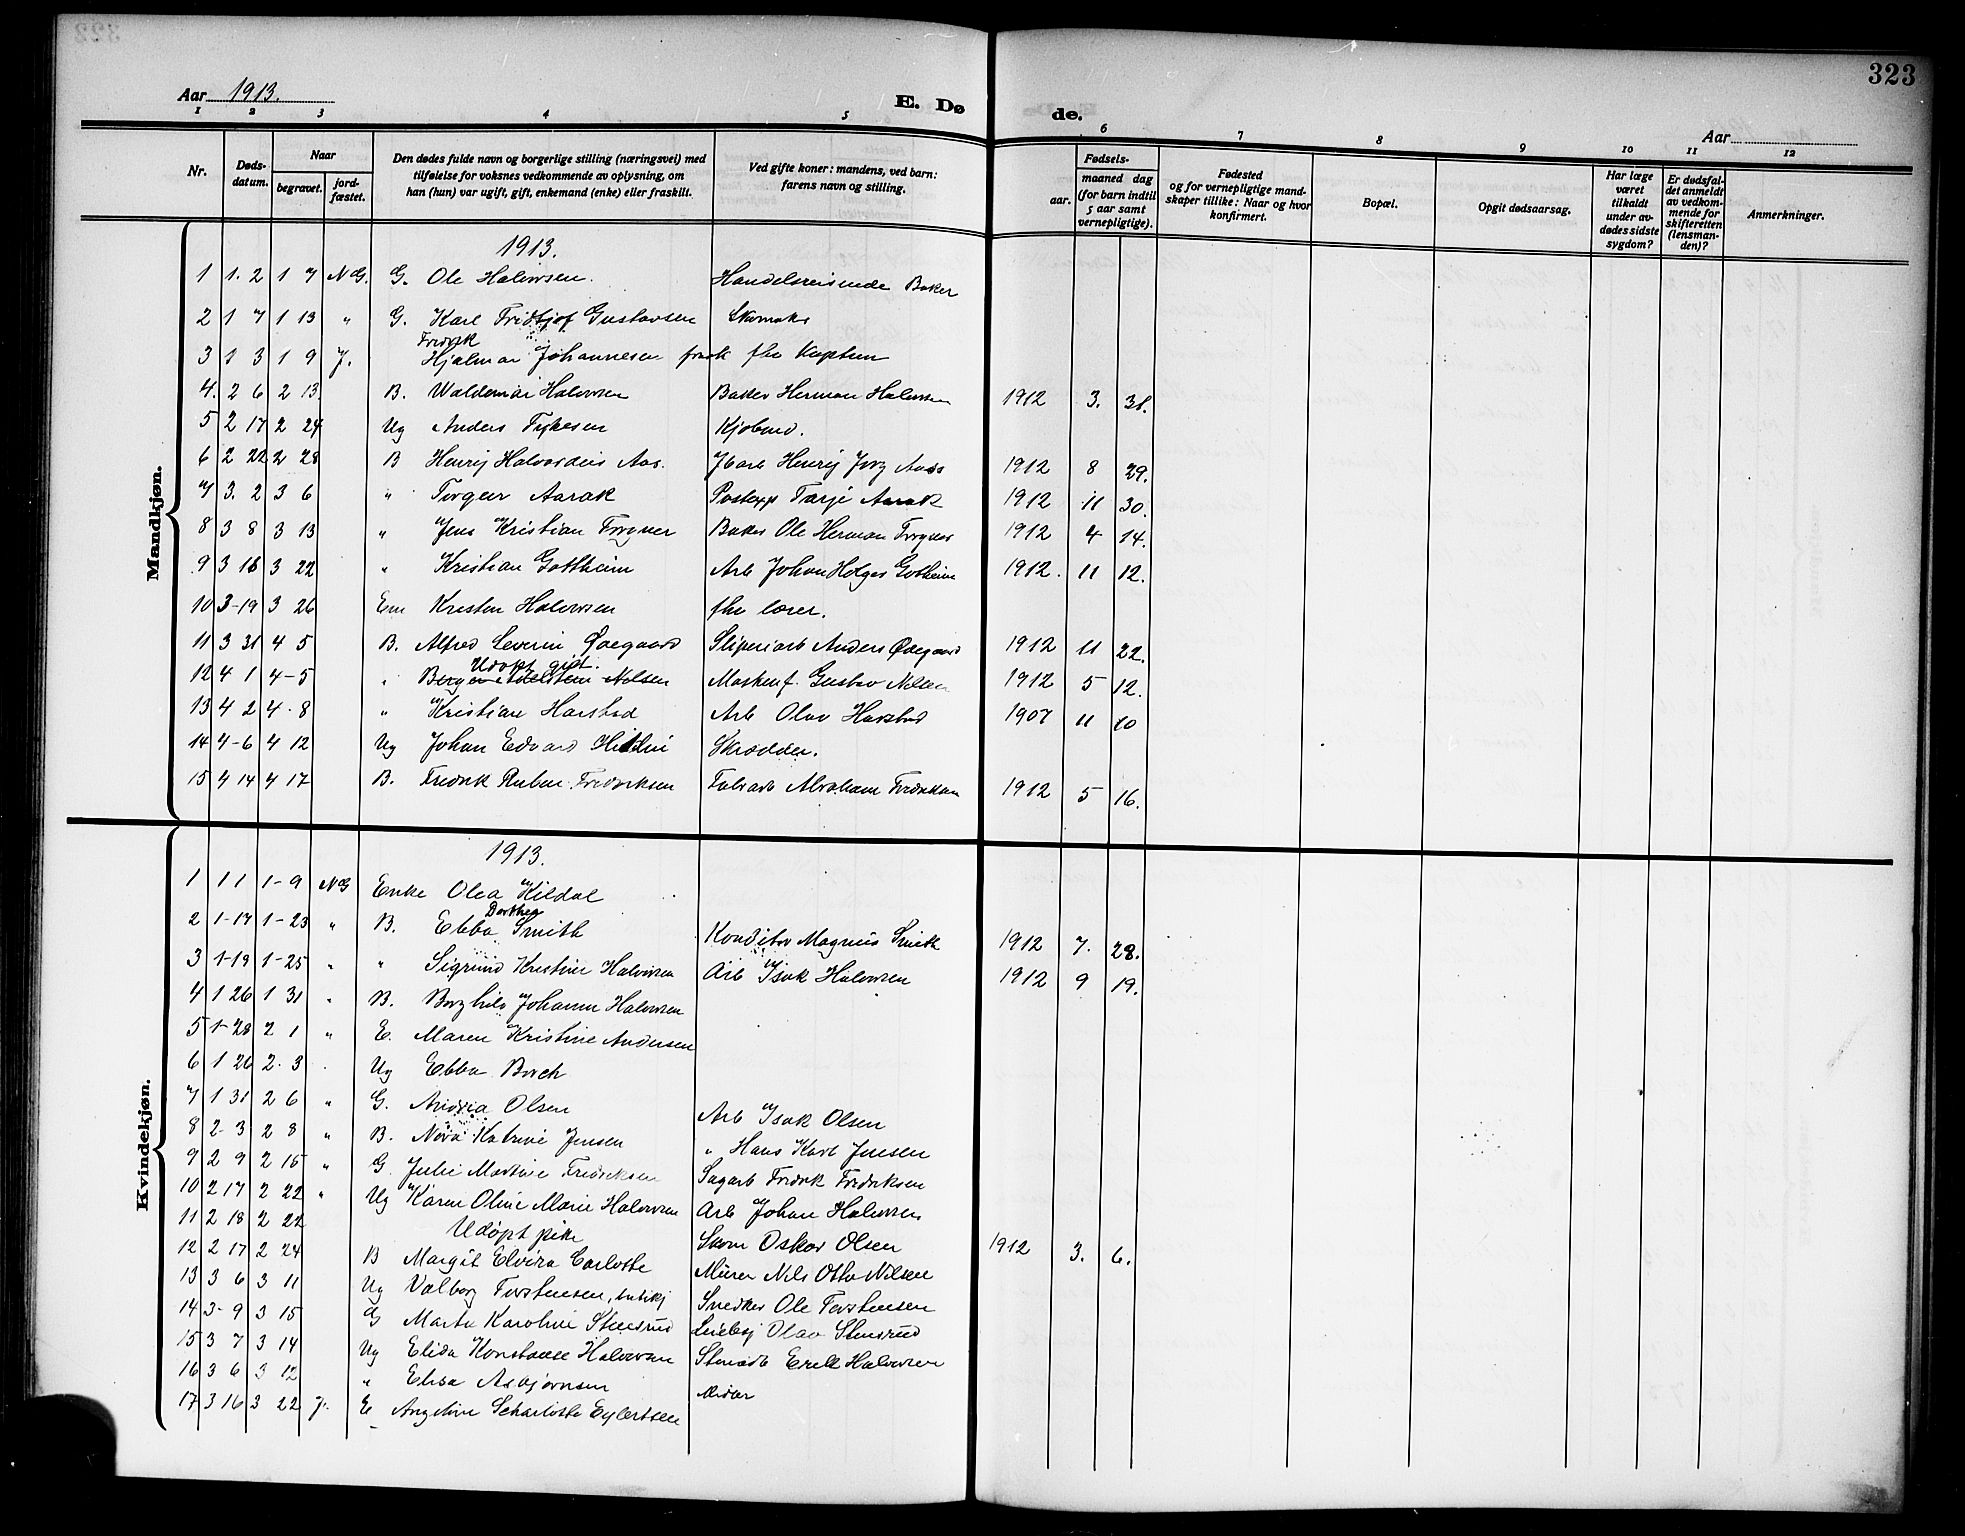 323
Aar 1913.
E. Dø
de.
Aar
1 2 3 4 5 6 7 8 9 10 11 12
Nr.
Døds-
datum.
Naar
begravet.
jord-
fæstet.
Den dødes fulde navn og borgerlige stilling (næringsvei) med
tilføielse for voksnes vedkommende av oplysning, om
han (hun) var ugift, gift, enkemand (enke) eller fraskilt.
Ved gifte koner: mandens, ved barn:
farens navn og stilling.
Fødsels-
aar.
maaned dag
(for barn indtil
5 aar samt
vernepligtige).
Fødested
og for vernepligtige mand-
skaper tillike: Naar og hvor
konfirmert.
Bopæl.
Opgit dødsaarsag.
Har læge
været
tilkaldt
under av-
dødes sidste
sygdom?
Er dødsfal-
det anmeldt
av vedkom-
mende for
skifteretten
(lensman-
den)?
Anmerkninger.
Mandkjøn.
1913.
1 1. 2 1 7 NG. G. Ole Halvorsen. Handelsreisende Baker
2 1 7 1 13 " G. Karl Fridtjof Gustavsen Skomaker
Fredrik
3 1 3 1 9 J. Hjalmar Johannesen frask fhv Kaptein
4. 2 6 2 13. B. Waldemar Halvorsen Baker Herman Halvorsen 1912 3. 31.
5 2 17 2 24 Ug Anders Kjøbmd.
6 2 22 2 28 B Henrij Aas. Henrij Aass 1912 8 29.
7 3. 2 3 6 " Torgeir Aarak Postexp Tarje Aarak 1912 11 30.
8 3 8 3 13 " Jens Kristian Frogner Baker Ole Herman Frogner 1912 4 14.
9 3 16 3 22 " Kristian Gottheim Arb Johan Holger Gotheim 1912. 11 12.
10 3-19 3 26 Em Kristen Halvorsen fhv lærer.
11 3 31 4 5 B. Alfred Severin Ødegaard Sliperiarb Anders Ødegaard 1912 11 22.
Udøpt gut.
12 4 1 4-5 " Nilsen Maskinf. Gustav Nilsen 1912 5 12.
13 4 2 4. 8 " Kristian Harstad Arb Olav Harstad 1907 11 10
14 4-6 4 12 Ug Johan Edvard Skrædder.
15 4 14 4 17 B. Fredrik Ruben Fredriksen Fabrarb Abraham Fredriksen 1912 5 16.
Kvindekjøn.
1913.
1 1 1 1-9 NG Enke Olea Kildal
Dorthea
2 1-17 1-23 " B. Ebba Smith Konditor Magnus Smith 1912 7. 28.
3 1-19 1-25 " " Sigrund Kristine Halvorsen Arb Isak Halvorsen 1912 9 19.
4 1 26 1 31 " B. Borghild Johanne Halvorsen
5 1-28 2 1 " E. Maren Kristine Andersen
6 1 26 2. 3 . Ug Ebba Borch
7 1 31 2 6 " G. Andrea Olsen Arb Isak Olsen
8 2. 3 2 8 " B. Nora Katrine Jensen " Hans Karl Jensen
9 2 9 2 15 " G Julie Martine Fredriksen Sagarb Fredrik Fredriksen
10 2 17 2 22 " Ug Karen Oline Marie Halvorsen Arb Johan Halvorsen
11 2 18 2 22 Udøpt pike Skom Oskar Olsen
12 2 17 2 24 B Margit Elvira Carlotte Murer Nils Otto Nilsen 1912 3. 6.
13 3 6 3 11 Ug Valborg Torstensen, butikj Snedker Ole Torstensen
14 3-9 3 15 G Marta Karoline Stensrud Olav Stensrud
15 3 7 3 14 Ug Elida Konstanse Halvorsen Stenarb Erik Halvorsen
16 3 6 3 12 " Elisa Asbjørnsen
17 3 16 3 22 J. E Angeline Scharlotte Eylertsen